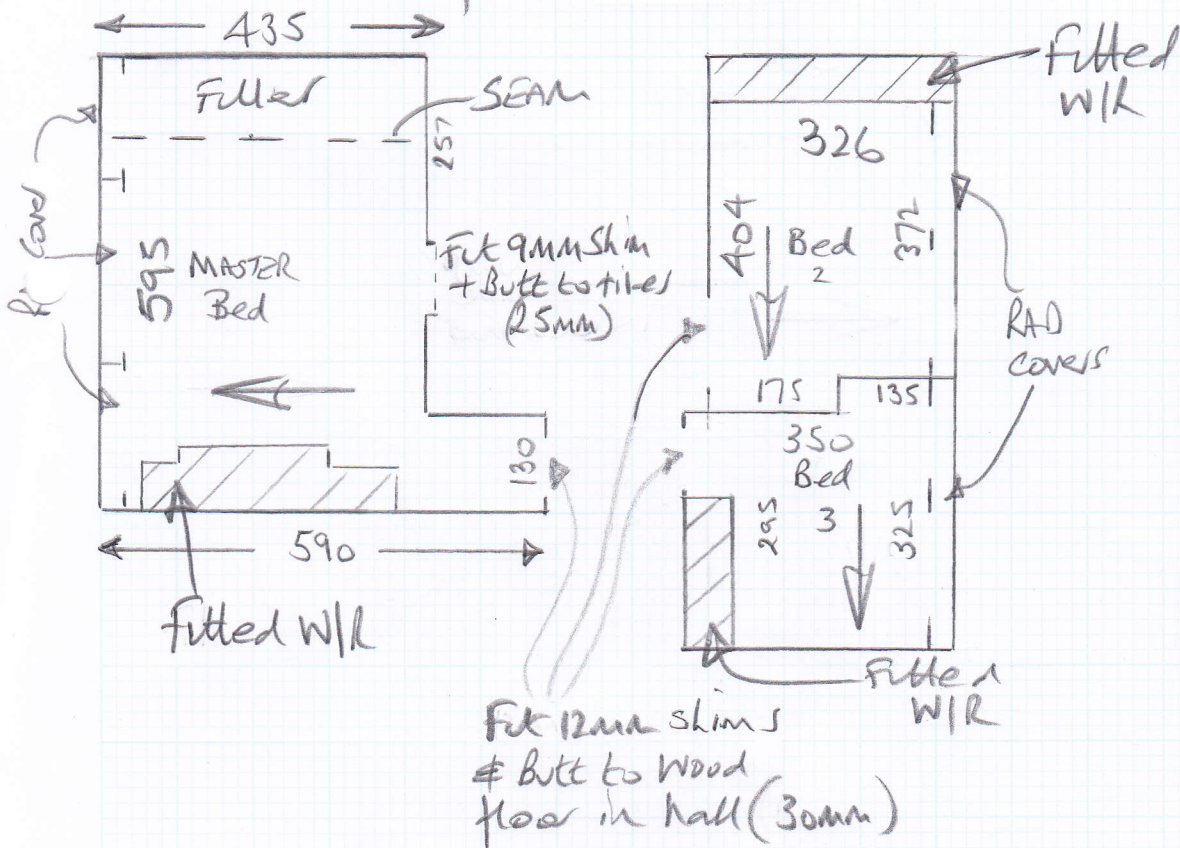 435
Filler
SEAM
257
595
MASTER
Bed
Fit 9mm Shim
+ Butt to tiles
(25mm)
130
590
Fitted W/R
Fitted
W/R
326
404
372
Bed
2
RAD
Covers
175
135
350
Bed
3
295
325
Fitted
W/R
Fit 12mm shims
& Butt to wood
floor in hall (30mm)
Cover